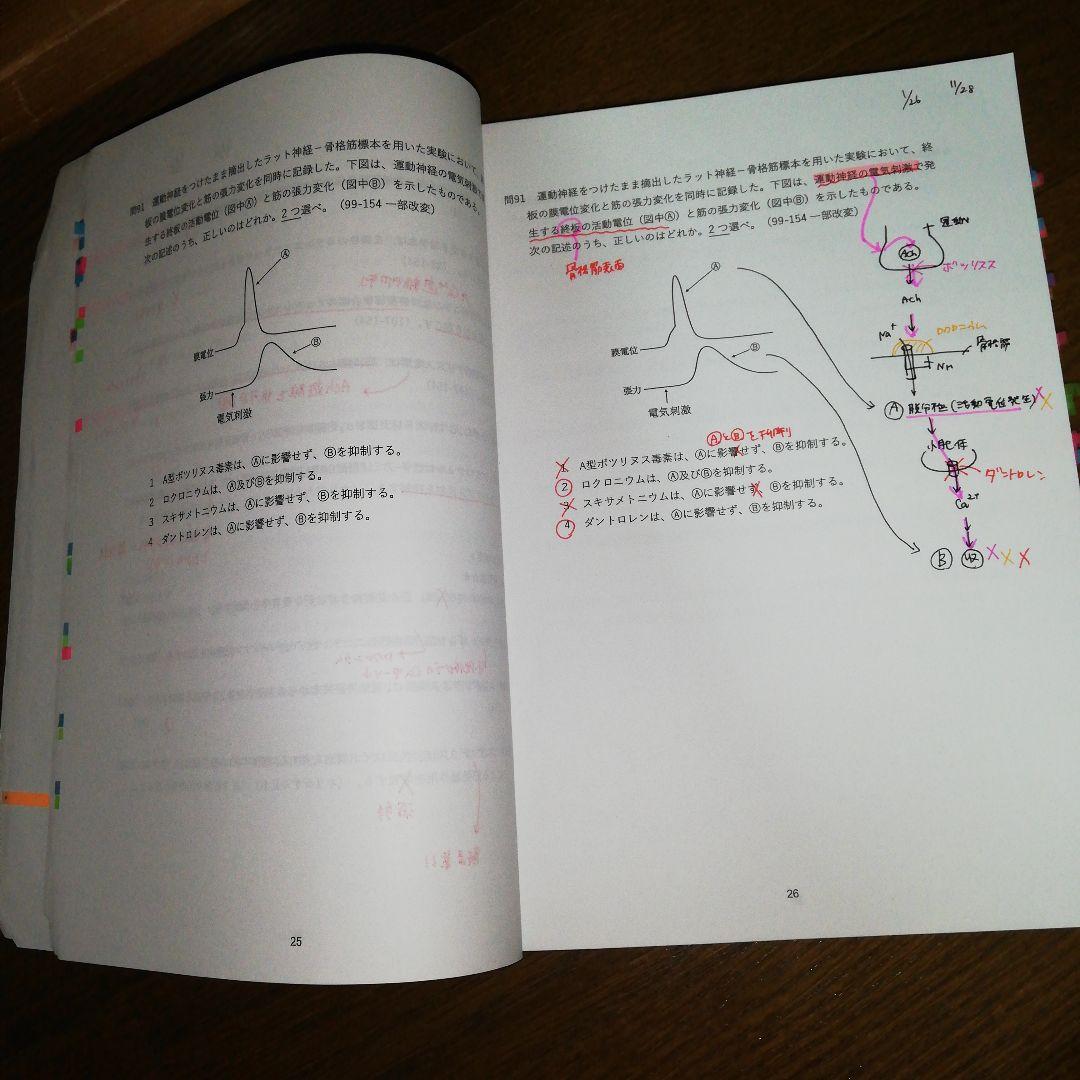 問91 運動神経をつけたまま摘出したラット神経－骨格筋標本を用いた実験において、
板の膜電位変化と筋の張力変化を同時に記録した。下図は、運動神経の電気刺激で
生する終板の活動電位（図中Ⓐ）と筋の張力変化（図中Ⓑ）を示したものである。
次の記述のうち、正しいのはどれか。2つ選べ。（99-154 一部改変）
Ⓐ
膜電位
Ⓑ
張力
電気刺激
1 A型ボツリヌス毒素は、Ⓐに影響せず、Ⓑを抑制する。
2 ロクロニウムは、Ⓐ及びⒷを抑制する。
3 スキサメトニウムは、Ⓐに影響せず、Ⓑを抑制する。
4 ダントロレンは、Ⓐに影響せず、Ⓑを抑制する。
25
1/26 11/28
問91 運動神経をつけたまま摘出したラット神経－骨格筋標本を用いた実験において、終
板の膜電位変化と筋の張力変化を同時に記録した。下図は、運動神経の電気刺激で発
生する終板の活動電位（図中Ⓐ）と筋の張力変化（図中Ⓑ）を示したものである。
次の記述のうち、正しいのはどれか。2つ選べ。（99-154 一部改変）
骨格筋表面
Ⓐ
膜電位
Ⓑ
張力
電気刺激
ⒶとⒷを抑制
1 A型ボツリヌス毒素は、Ⓐに影響せず、Ⓑを抑制する。
2 ロクロニウムは、Ⓐ及びⒷを抑制する。
3 スキサメトニウムは、Ⓐに影響せず、Ⓑを抑制する。
4 ダントロレンは、Ⓐに影響せず、Ⓑを抑制する。
運動N
Ach
ボツリヌス
Ach
Na⁺
ロクロニウム
骨格筋
Nм
Ⓐ 脱分極（活動電位発生）
小胞体
ダントロレン
Ca²⁺
Ⓑ 収
26